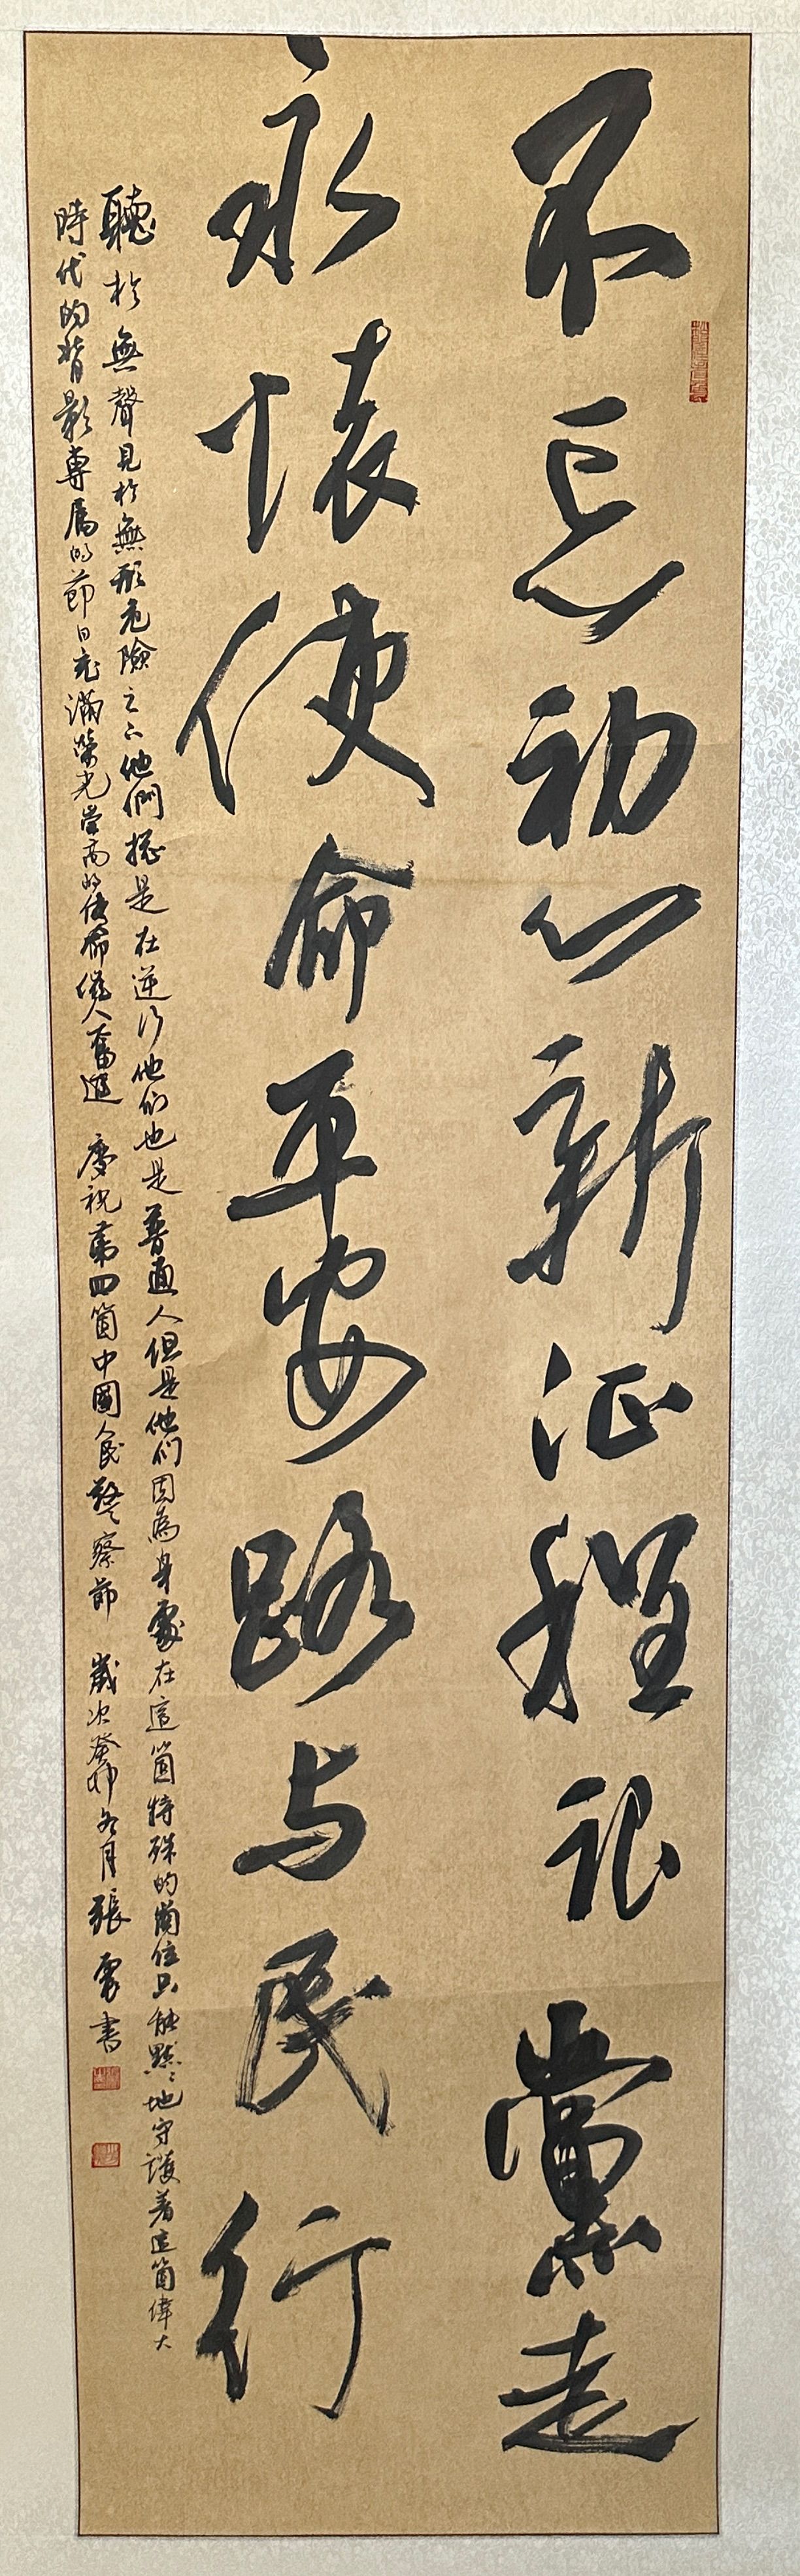 不忘初心新征程跟黨走
永懷使命平安路与民行
聽於無聲見於無形危險之下他們總是在逆行他们也是普通人但是他们因為身處在這箇特殊的崗位只能默默地守護着這箇偉大
時代的背影專屬的節日充滿榮光崇高的使命催人奮進 慶祝第四箇中國人民警察節 歲次癸卯冬月張雷書